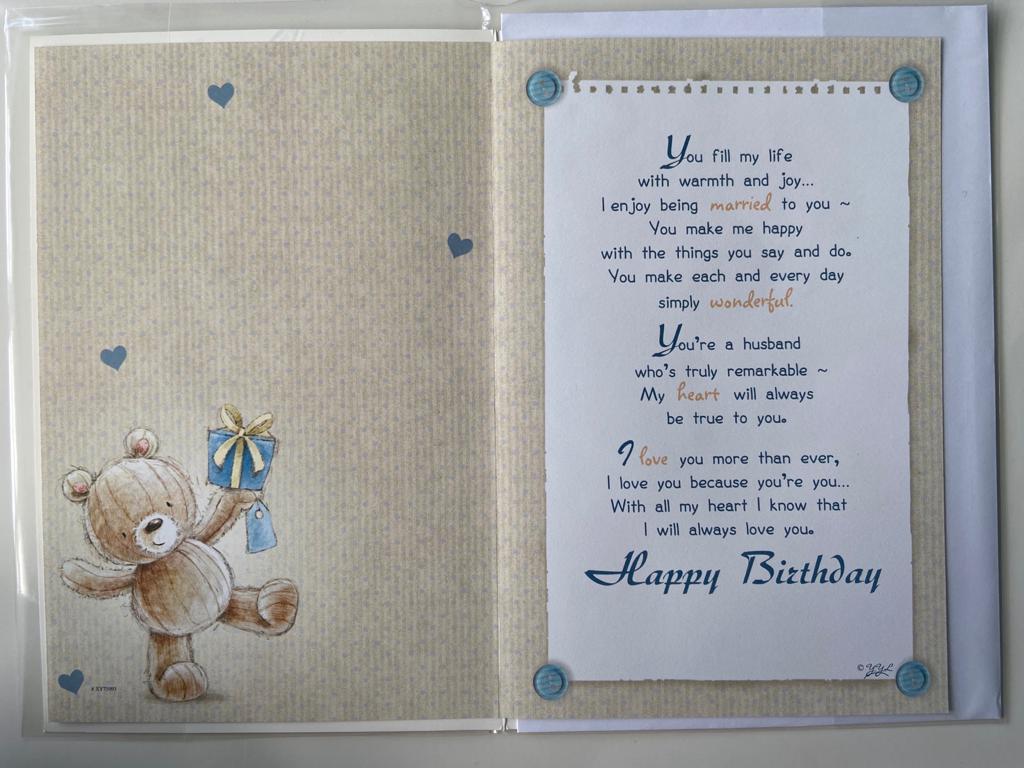 You fill my life
with warmth and joy...
I enjoy being married to you ~
You make me happy
with the things you say and do.
You make each and every day
simply wonderful.
You're a husband
who's truly remarkable ~
My heart will always
be true to you.
I love you more than ever,
I love you because you're you...
With all my heart I know that
I will always love you.
Happy Birthday
© YYL